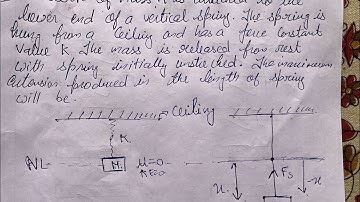 of mass M is attached to the
lower end of a vertical spring. The spring is
hung from a ceiling and has a force constant
value K. The mass is released from rest
with spring initially unstretched. The maximum
extension produced in the length of spring
will be.
Ceiling
K.
NL
M.
U=0
Fs
x.
-x